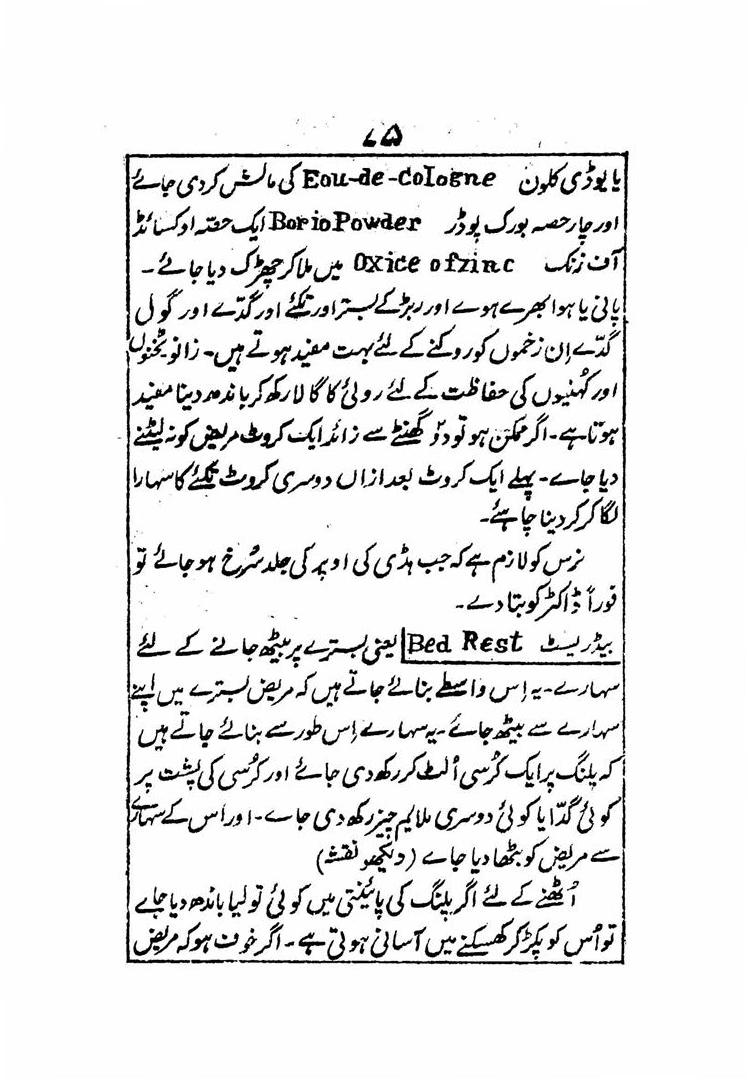 ۷۵
یا یوڈی کلون Eou-de-Cologne کی مالش کر دی جائے
اور چار حصہ بورک پوڈر Borio Powder ایک حصّہ اوکسائڈ
آف زنک Oxice of zinc میں ملا کر چھڑک دیا جائے۔
پانی یا ہوا بھرے ہوے اور ربڑ کے بستر اور تکئے اور گدّے اور گول
گدّے اِن زخموں کو روکنے کے لئے بہت مفید ہوتے ہیں۔ زانو ٹخنوں
اور کُہنیوں کی حفاظت کے لئے روئی کا گالا رکھ کر باندھ دینا مفید
ہوتا ہے۔ اگر ممکن ہو تو دوؔ گھنٹے سے زائد ایک کروٹ مریض کو نہ لیٹنے
دیا جاے۔ پہلے ایک کروٹ بعد ازاں دوسری کروٹ تکئے کا سہارا
لگا کر کر دینا چاہئے۔
نرس کو لازم ہے کہ جب ہڈی کی اوپر کی جلد سُرخ ہو جائے تو
فوراً ڈاکٹر کو بتا دے۔
بیڈ ریسٹ Bed Rest یعنی بسترے پر بیٹھ جانے کے لئے
سہارے۔ یہ اِس واسطے بنائے جاتے ہیں کہ مریض بسترے میں اپنے
سہارے سے بیٹھ جائے۔ یہ سہارے اِس طور سے بنائے جاتے ہیں
کہ پلنگ پر ایک کُرسی اُلٹ کر رکھ دی جائے اور کرُسی کی پشت پر
کوئی گدّا یا کوئی دوسری ملایم چیز رکھ دی جاے۔ اور اُس کے سہارے
سے مریض کو بٹھا دیا جاے (دیکھو نقشہ)
اُٹھنے کے لئے اگر پلنگ کی پائینتی میں کوئی تولیا باندھ دیا جاے
تو اُس کو پکڑ کر کھسکنے میں آسانی ہوتی ہے۔ اگر خوف ہو کہ مریض